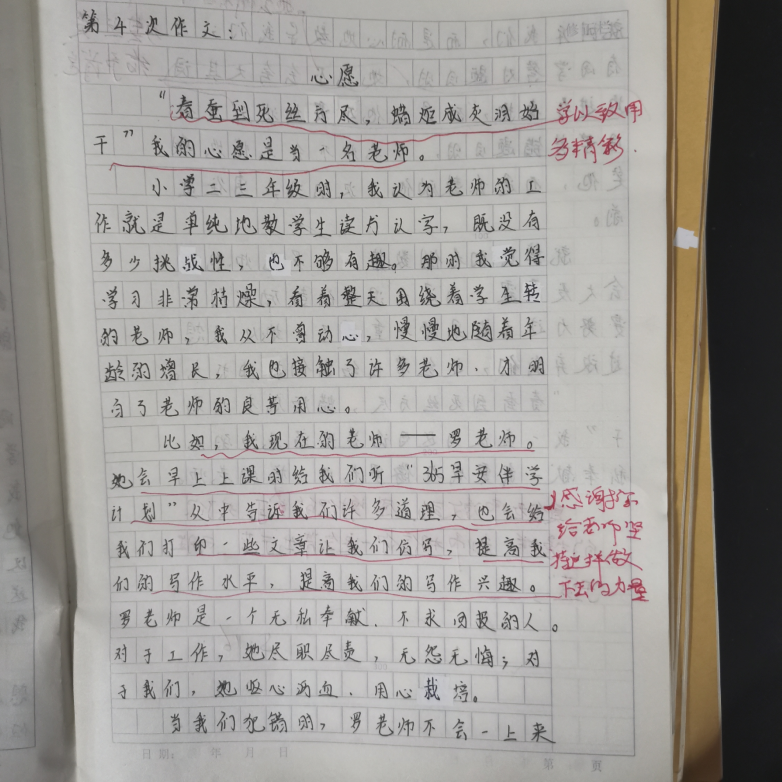 第4次作文：
心愿
“春蚕到死丝方尽，蜡炬成灰泪始 学以致用
干”我的心愿是当一名老师。 多精彩.
小学二三年级时，我认为老师的工
作就是单纯地教学生读书认字，既没有
多少挑战性，也不够有趣。那时我觉得
学习非常枯燥，看着整天围绕着学生转
的老师，我从不曾动心，慢慢地随着年
龄的增长，我也接触了许多老师.才明
白了老师的良苦用心。
比如，我现在的老师——罗老师。
她会早上上课时给我们听“365早安伴学
计划”从中告诉我们许多道理，也会给 感谢你
我们打印一些文章让我们仿写，提高我 给老师坚
们的写作水平，提高我们的写作兴趣。 持这样做
罗老师是一个无私奉献.不求回报的人。 下去的力量
对于工作，她尽职尽责，无怨无悔；对
于我们，她呕心沥血.用心栽培。
当我们犯错时，罗老师不会一上来
日期： 年 月 日 第 页